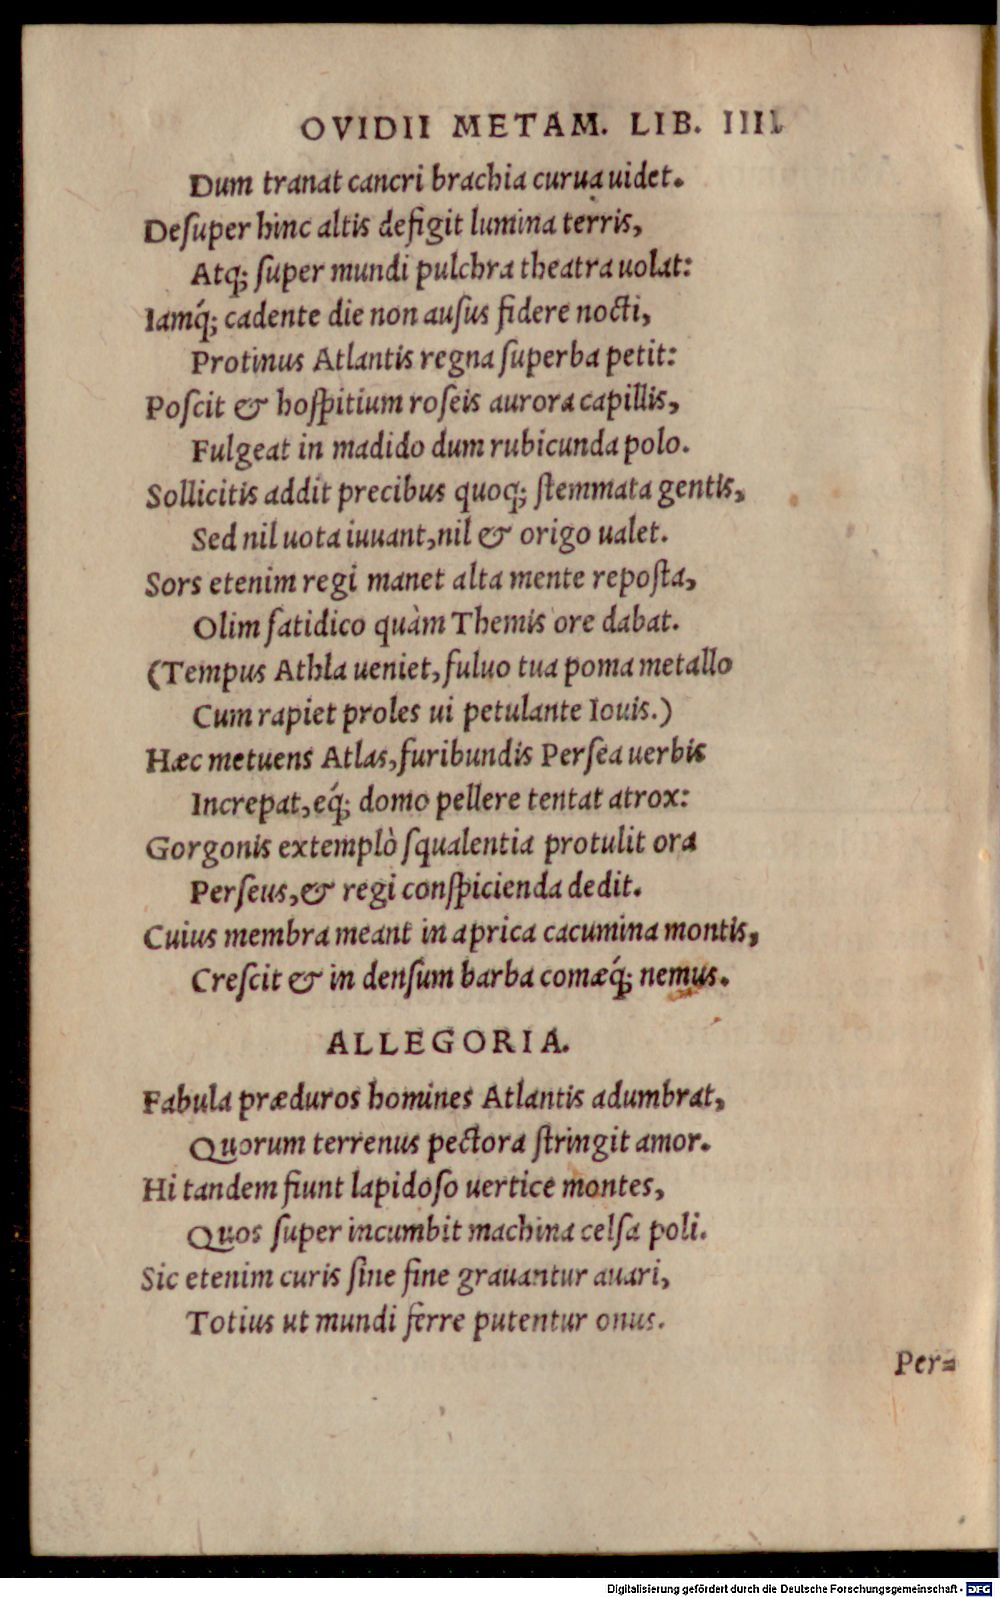 OVIDII METAM. LIB. IIII.
Dum tranat cancri brachia curua uidet.
Deſuper hinc altis defigit lumina terris,
Atq; ſuper mundi pulchra theatra uolat:
Iamq́; cadente die non auſus fidere nocti,
Protinus Atlantis regna ſuperba petit:
Poſcit & hoſpitium roſeis aurora capillis,
Fulgeat in madido dum rubicunda polo.
Sollicitis addit precibus quoq; ſtemmata gentis,
Sed nil uota iuuant, nil & origo ualet.
Sors etenim regi manet alta mente repoſta,
Olim fatidico quàm Themis ore dabat.
(Tempus Athla ueniet, fuluo tua poma metallo
Cum rapiet proles ui petulante Iouis.)
Hæc metuens Atlas, furibundis Perſea uerbis
Increpat, eq́; domo pellere tentat atrox:
Gorgonis extemplò ſqualentia protulit ora
Perſeus, & regi conſpicienda dedit.
Cuius membra meant in aprica cacumina montis,
Creſcit & in denſum barba comæq́; nemus.
ALLEGORIA.
Fabula præduros homines Atlantis adumbrat,
Quorum terrenus pectora ſtringit amor.
Hi tandem fiunt lapidoſo uertice montes,
Quos ſuper incumbit machina celſa poli.
Sic etenim curis ſine fine grauantur auari,
Totius ut mundi ferre putentur onus.
Per=
Digitalisierung gefördert durch die Deutsche Forschungsgemeinschaft - DFG